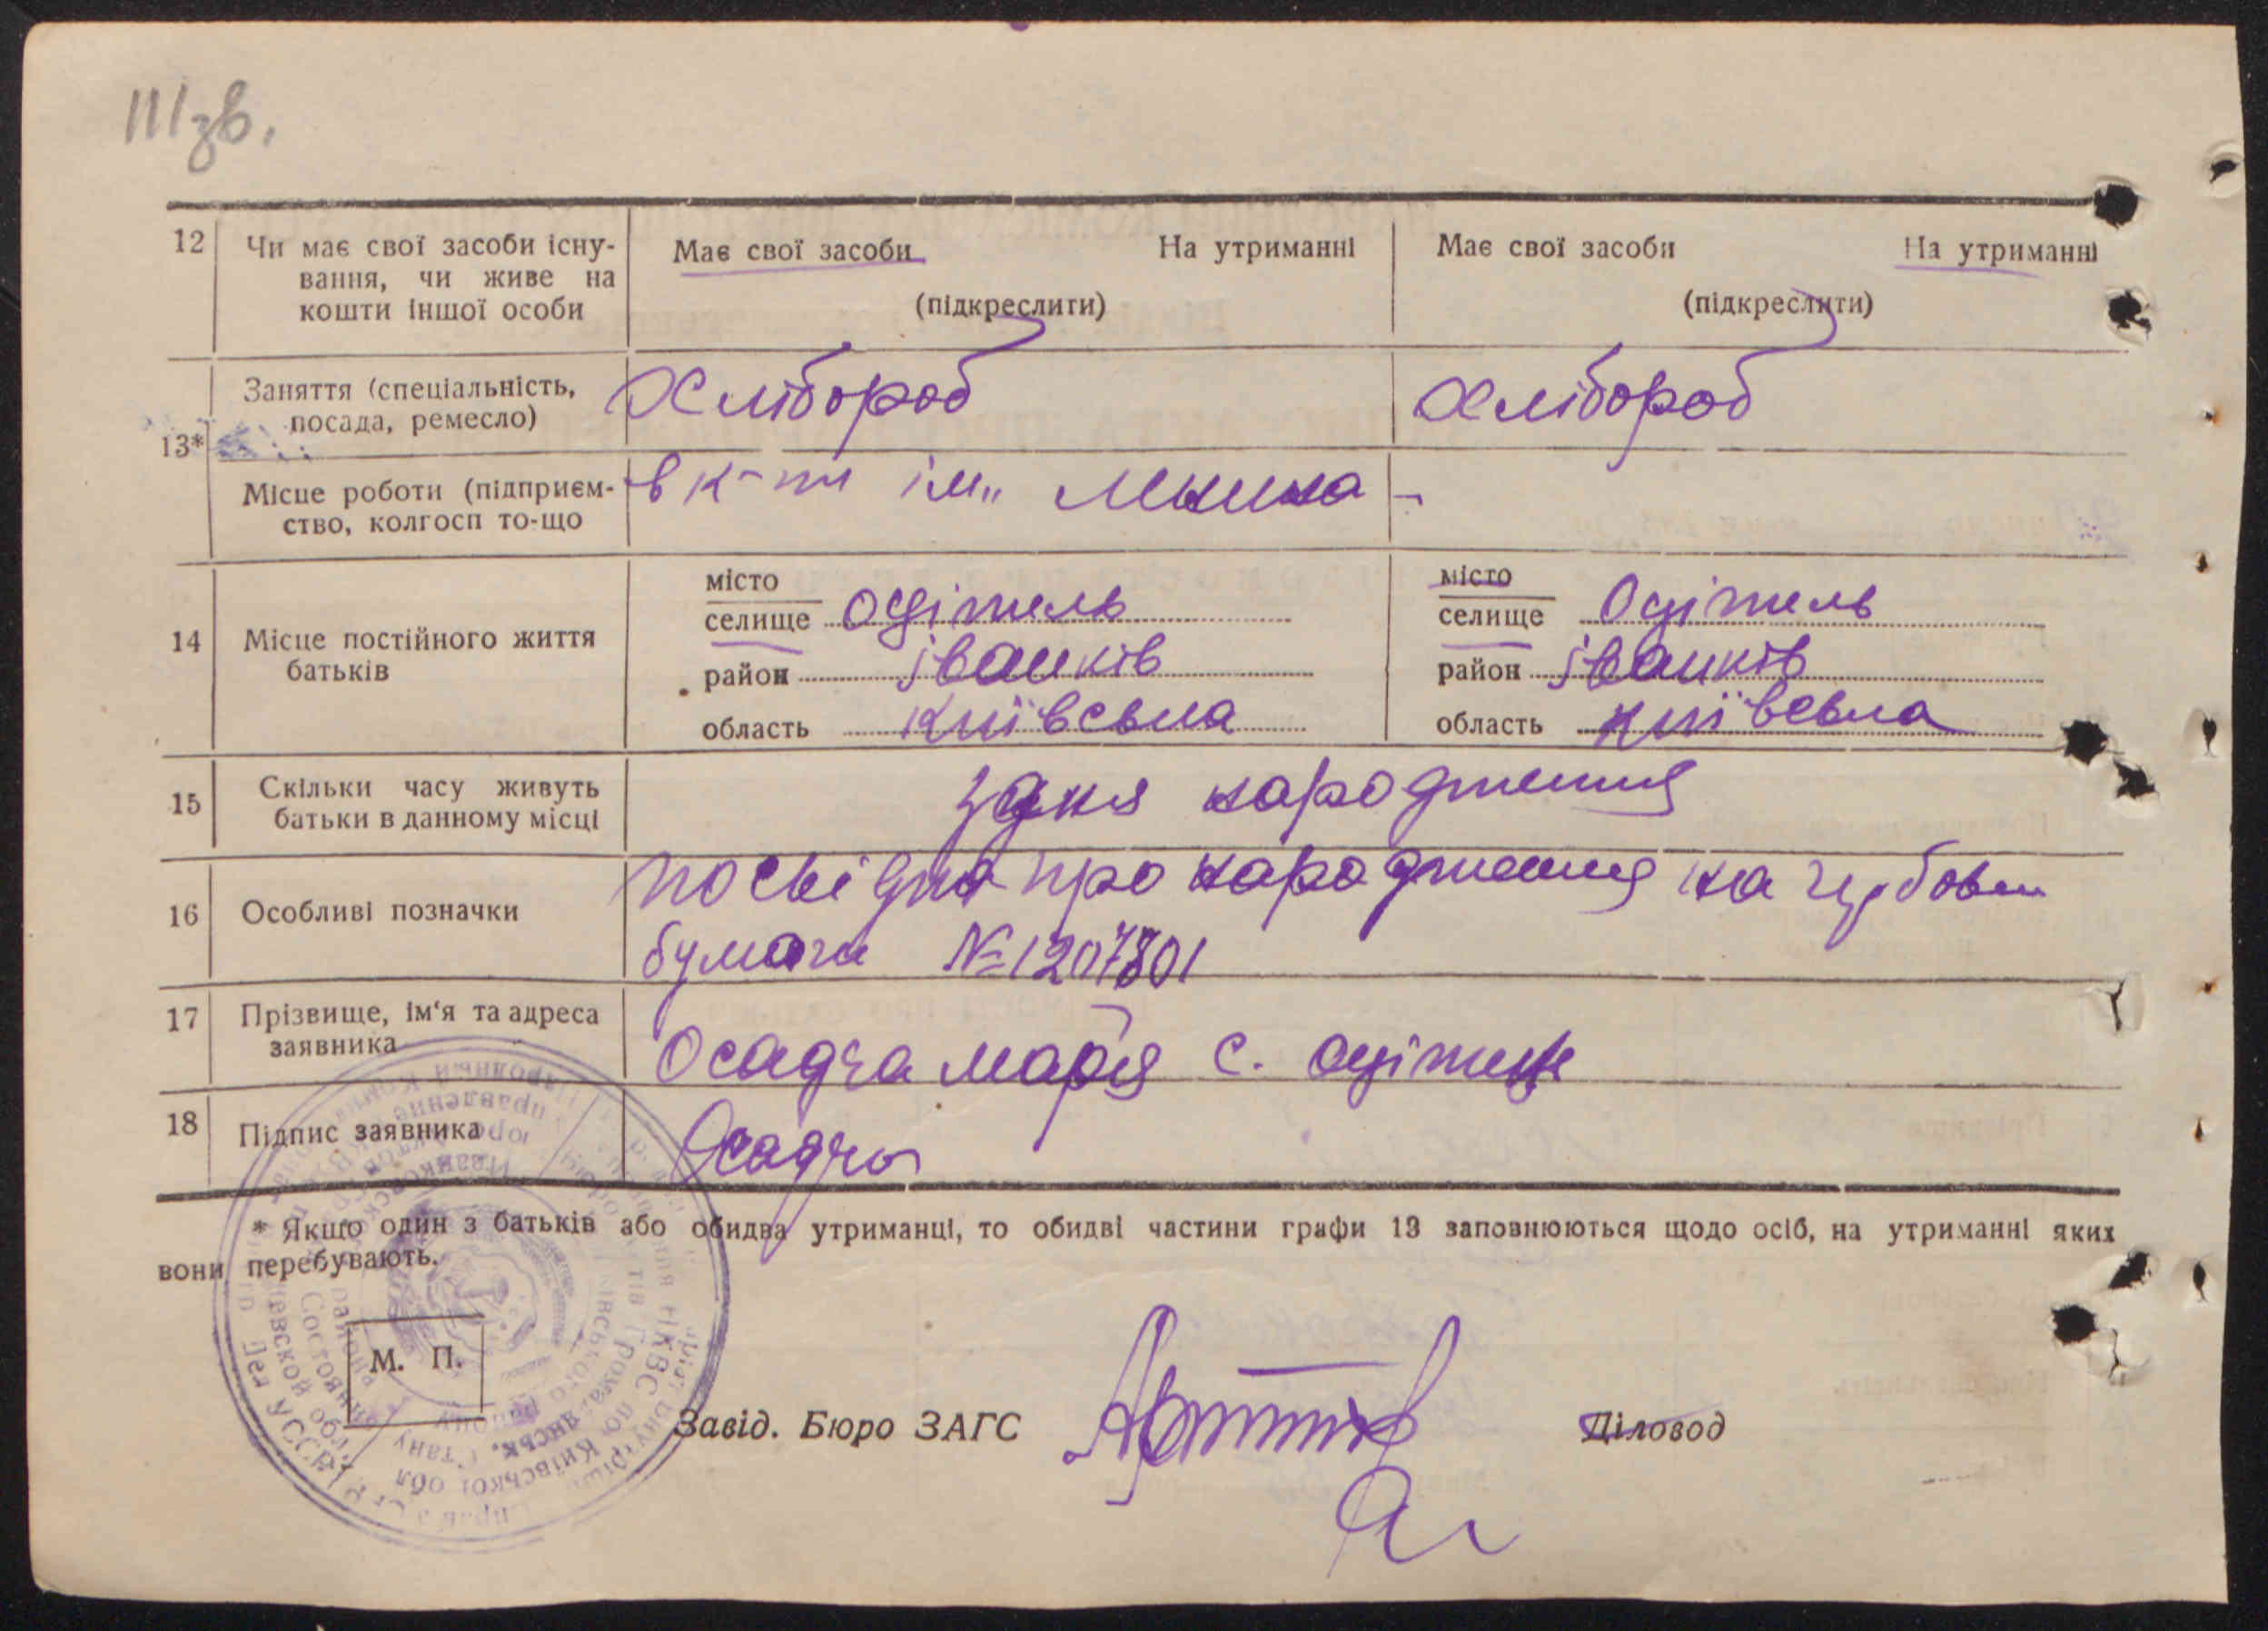 111зв.
12 Чи має свої засоби існу-
вання, чи живе на
кошти іншої особи
Має свої засоби На утриманні
(підкреслити)
Має свої засоби На утриманні
(підкреслити)
13*
Заняття (спеціальність,
посада, ремесло)
Хлібороб
Хлібороб
Місце роботи (підприєм-
ство, колгосп то-що
в к-пі ім.
-
14 Місце постійного життя
батьків
місто
селище Оцітель
район іванків
область київська
місто
селище Оцітель
район іванків
область київська
15 Скільки часу живуть
батьки в данному місці
з дня народження
16 Особливі позначки
посвідка про народження на гербовій
бумагі №1207801
17 Прізвище, ім'я та адреса
заявника
Осадча Марія с. Оцітель
18 Підпис заявника
Осадча
* Якщо один з батьків або обидва утриманці, то обидві частини графи 13 заповнюються щодо осіб, на утриманні яких
вони перебувають.
М. П.
Завід. Бюро ЗАГС
Діловод